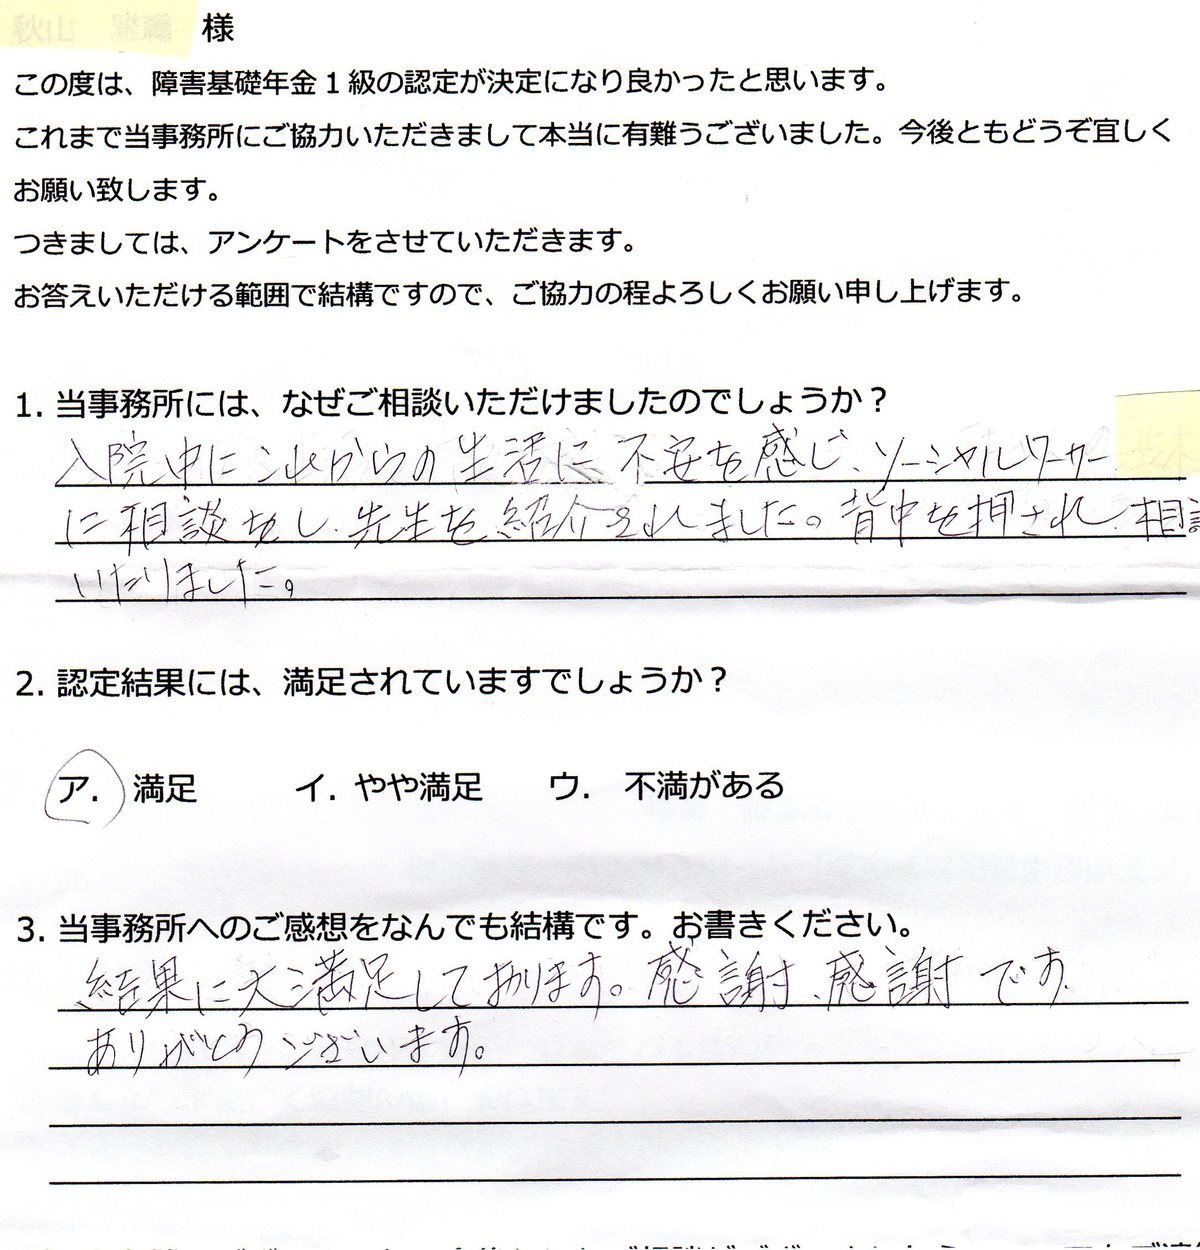 様
この度は、障害基礎年金1級の認定が決定になり良かったと思います。
これまで当事務所にご協力いただきまして本当に有難うございました。今後ともどうぞ宜しく
お願い致します。
つきましては、アンケートをさせていただきます。
お答えいただける範囲で結構ですので、ご協力の程よろしくお願い申し上げます。
1. 当事務所には、なぜご相談いただけましたのでしょうか？
入院中にこれからの生活に不安を感じ、ソーシャルワーカー
に相談をし、先生を紹介されました。背中を押され、相談
いたりました。
2. 認定結果には、満足されていますでしょうか？
ア. 満足 イ. やや満足 ウ. 不満がある
3. 当事務所へのご感想をなんでも結構です。お書きください。
結果に大満足しております。感謝、感謝です。
ありがとうございます。